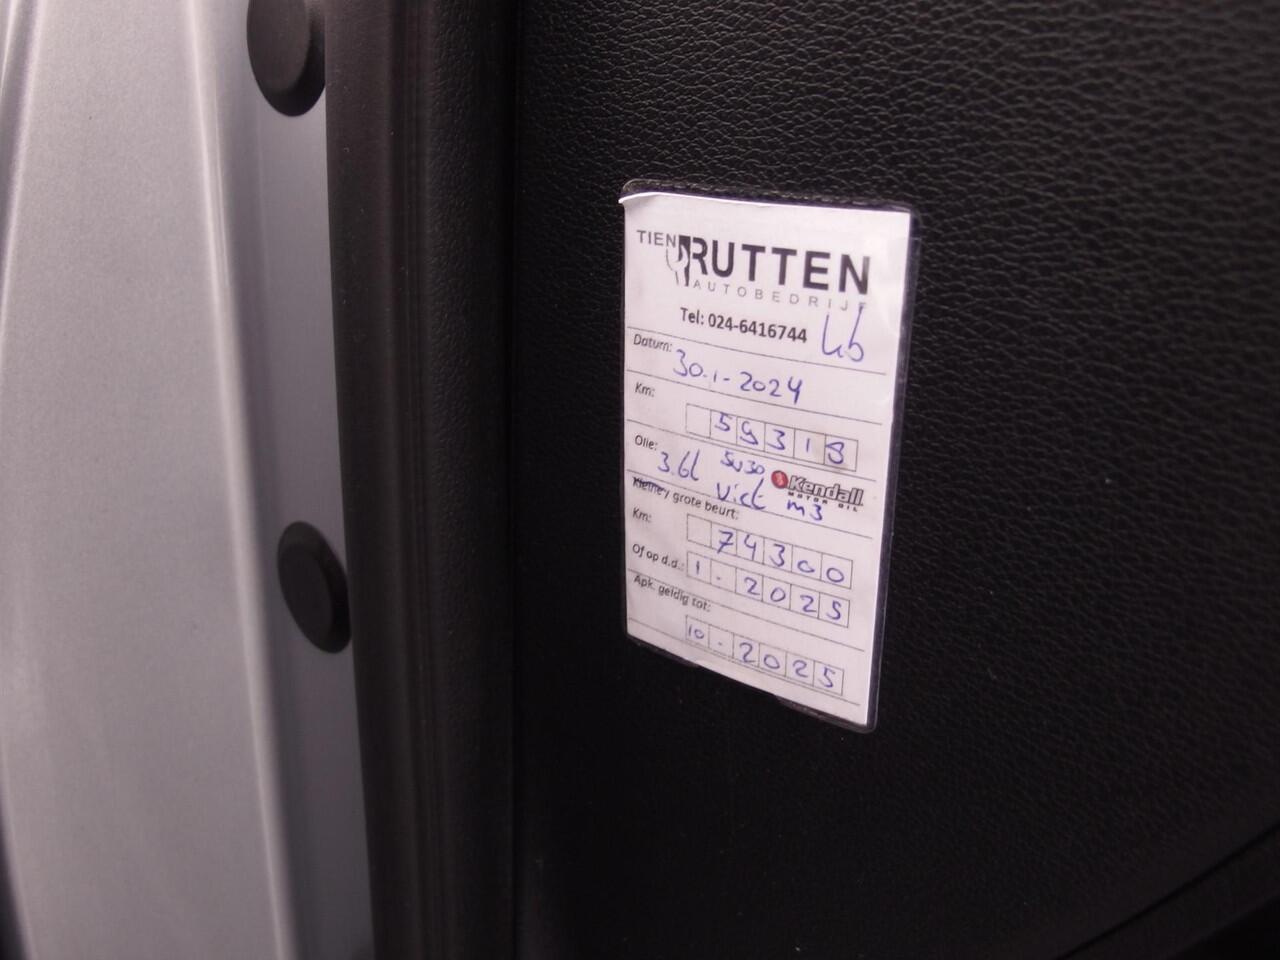 TIEN RUTTEN
AUTOBEDRIJF
Tel: 024-6416744
Datum: 30-1-2024
Km: 59318
Olie: 3.6l 5w30 Kendall
MOTOR OIL
Kleine / grote beurt:
Km: 74300
Of op d.d.: 1-2025
Apk. geldig tot:
10-2025